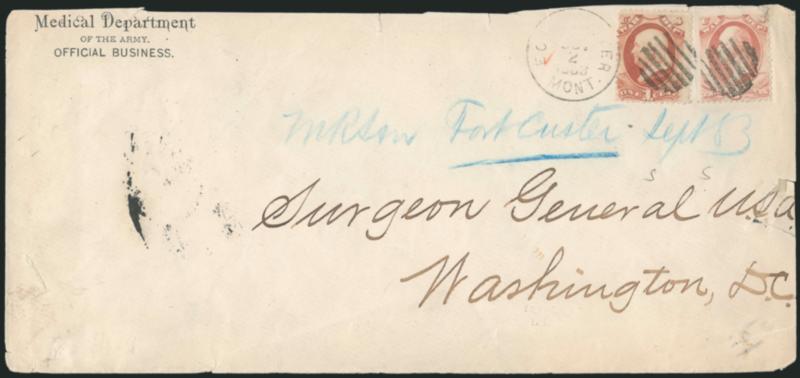 Medical Department
OF THE ARMY.
OFFICIAL BUSINESS.
2
MONT.
Fort Custer Sept 83
S S
Surgeon General U.S.A.
Washington, D.C.